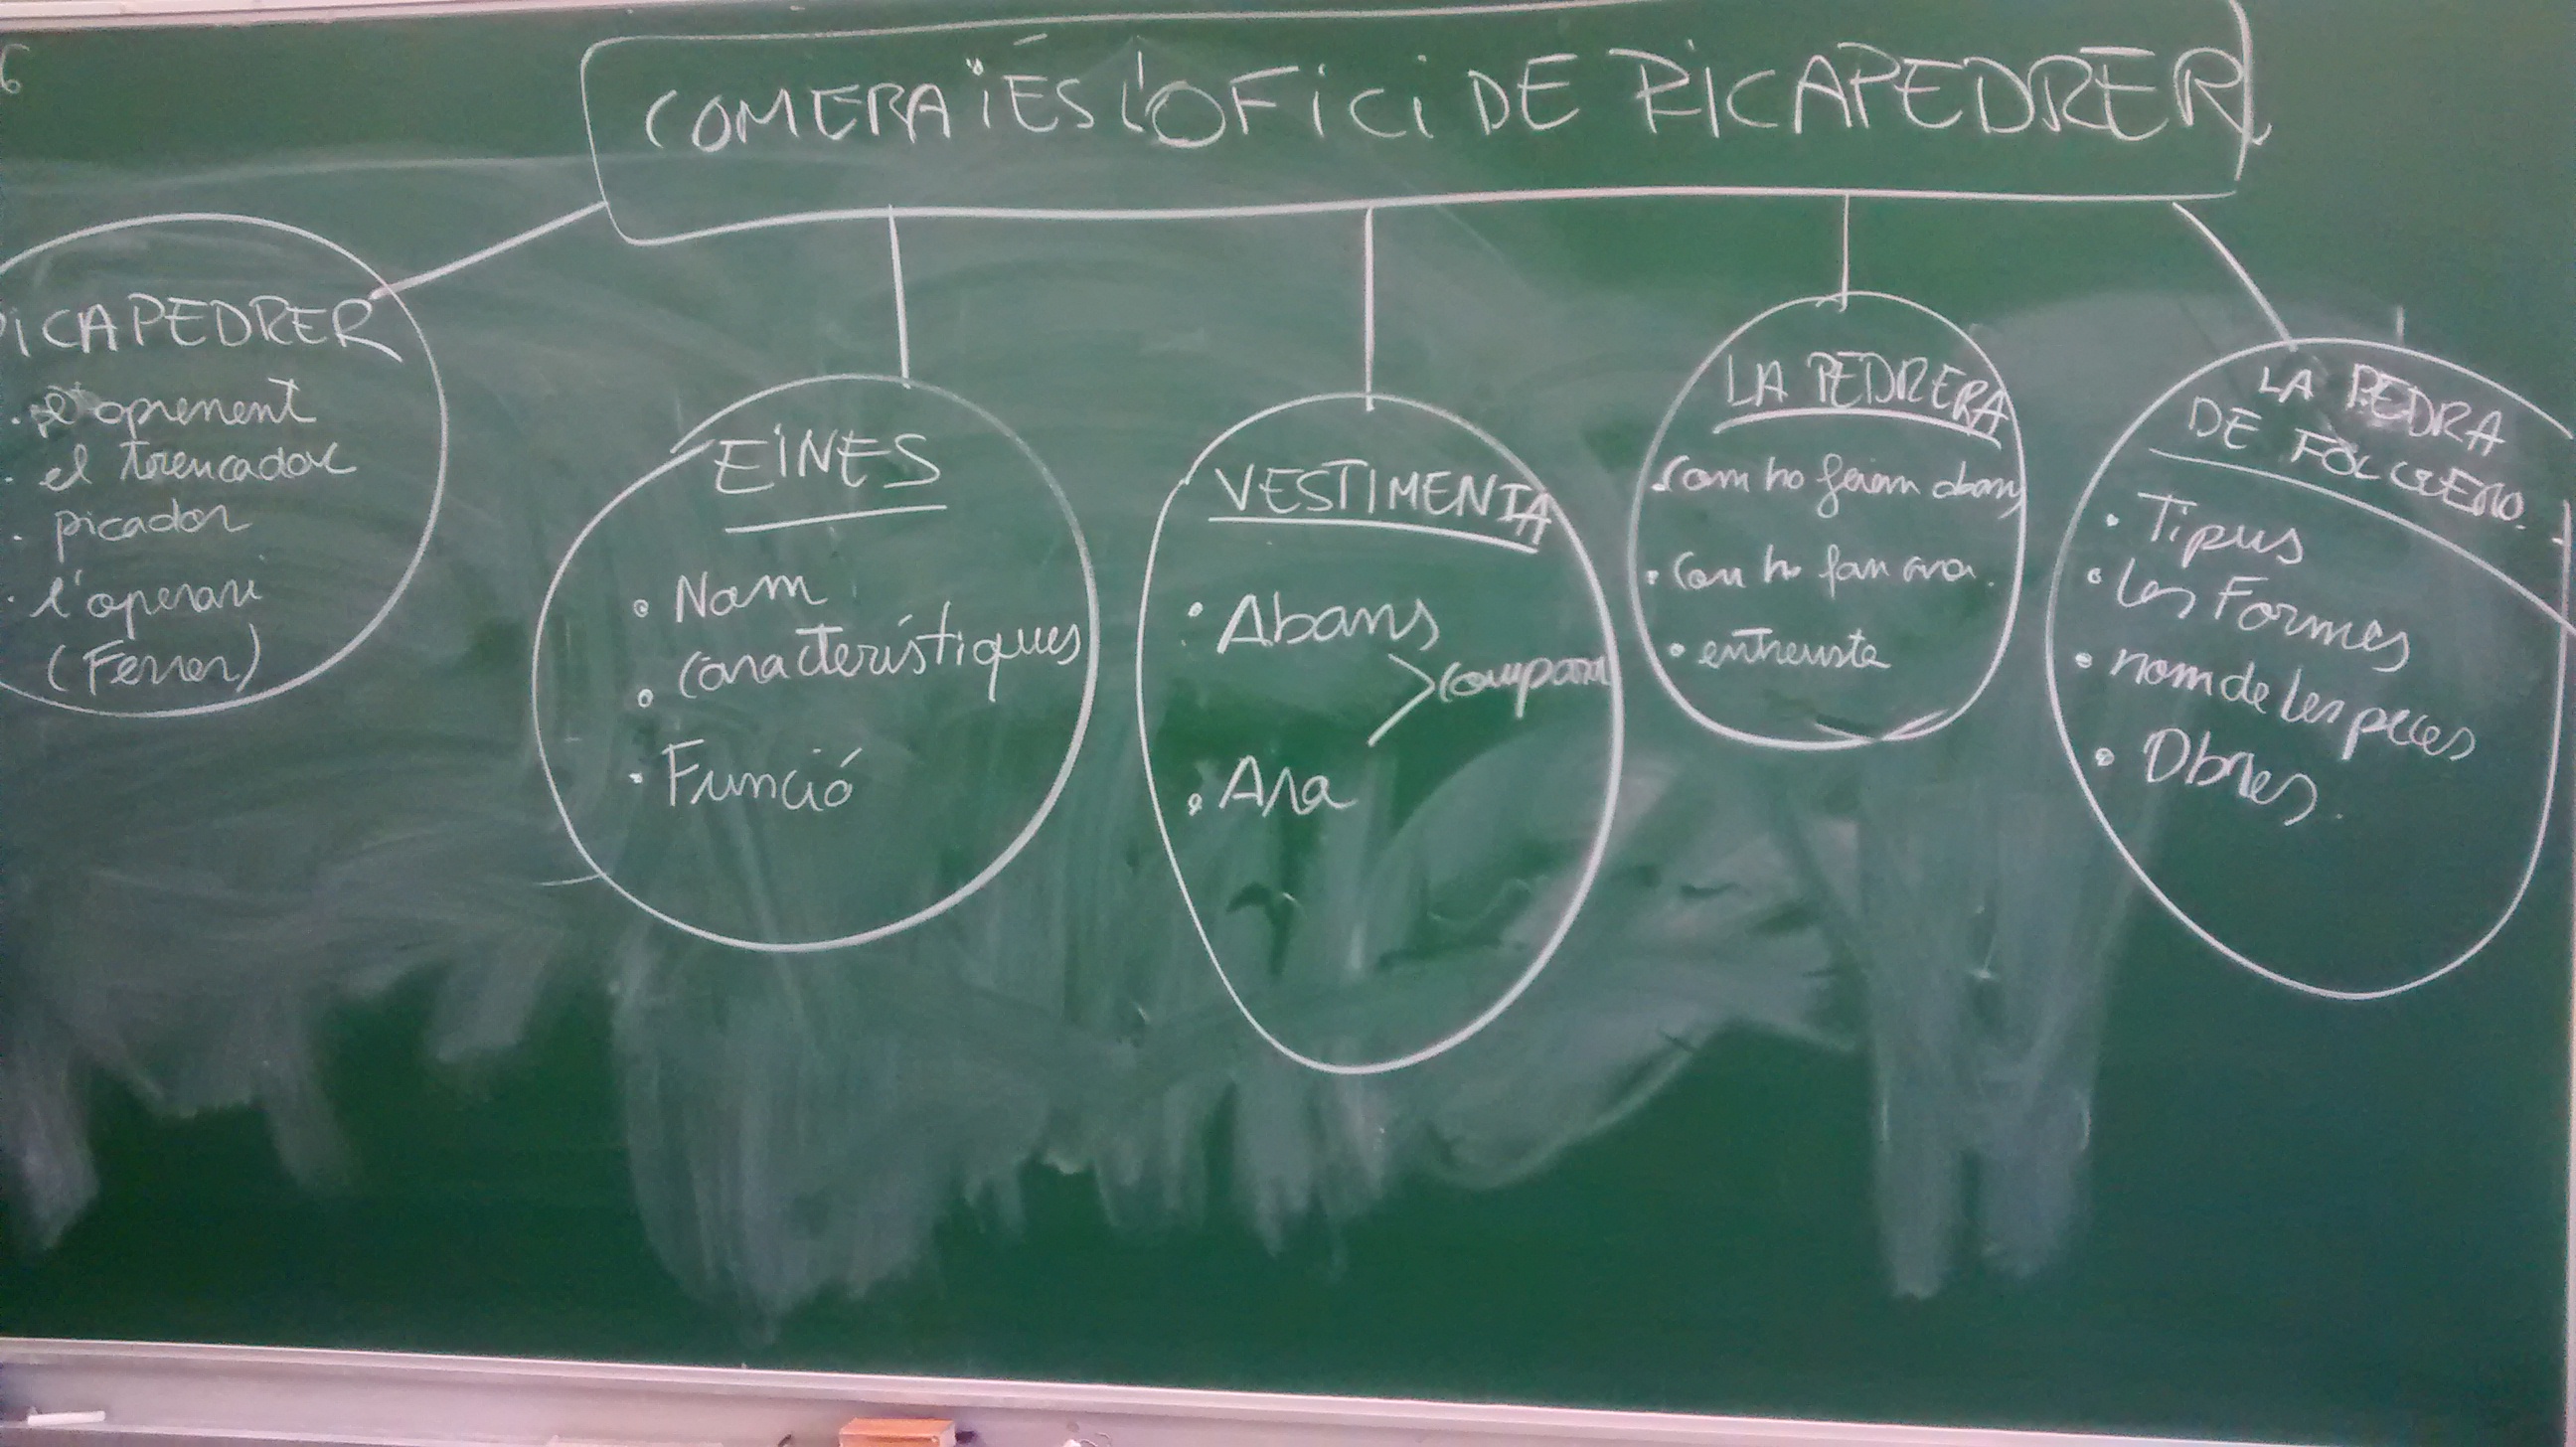 6
COM ERA i ÉS L'OFiCi DE PICAPEDRER
PICAPEDRER
· l'aprenent
· el trencador
· picador
· l'operari
(Ferrer)
EiNES
· Nom
· característiques
· Funció
VESTIMENTA
· Abans
> compara
· Ara
LA PEDRERA
· Com ho feien abans
· Com ho fan ara.
· entrevista
LA PEDRA
DE FOLGUERO
· Tipus
· Les Formes
· nom de les peces
· Obres.